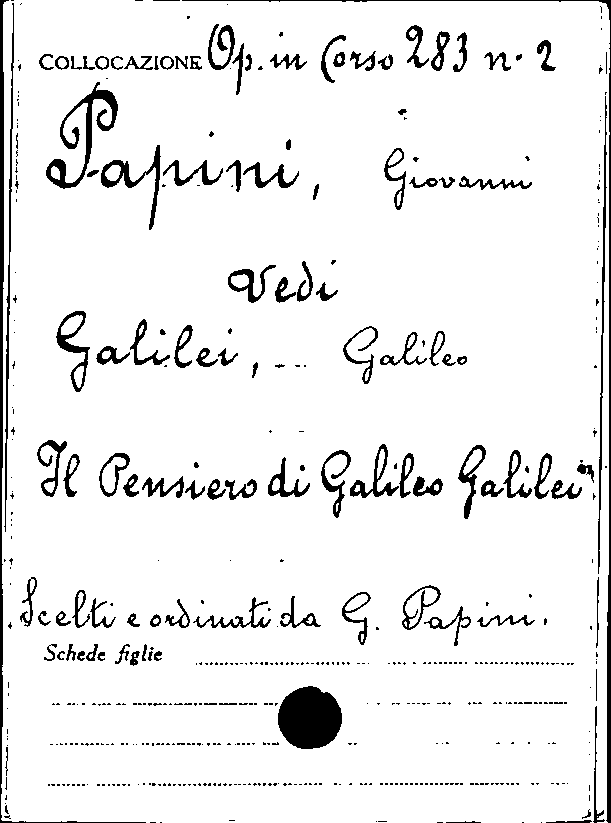 COLLOCAZIONE Op. in Corso 283 n. 2
Papini, Giovanni
Vedi
Galilei, Galileo
Il Pensiero di Galileo Galilei
Scelti e ordinati da G. Papini.
Schede figlie